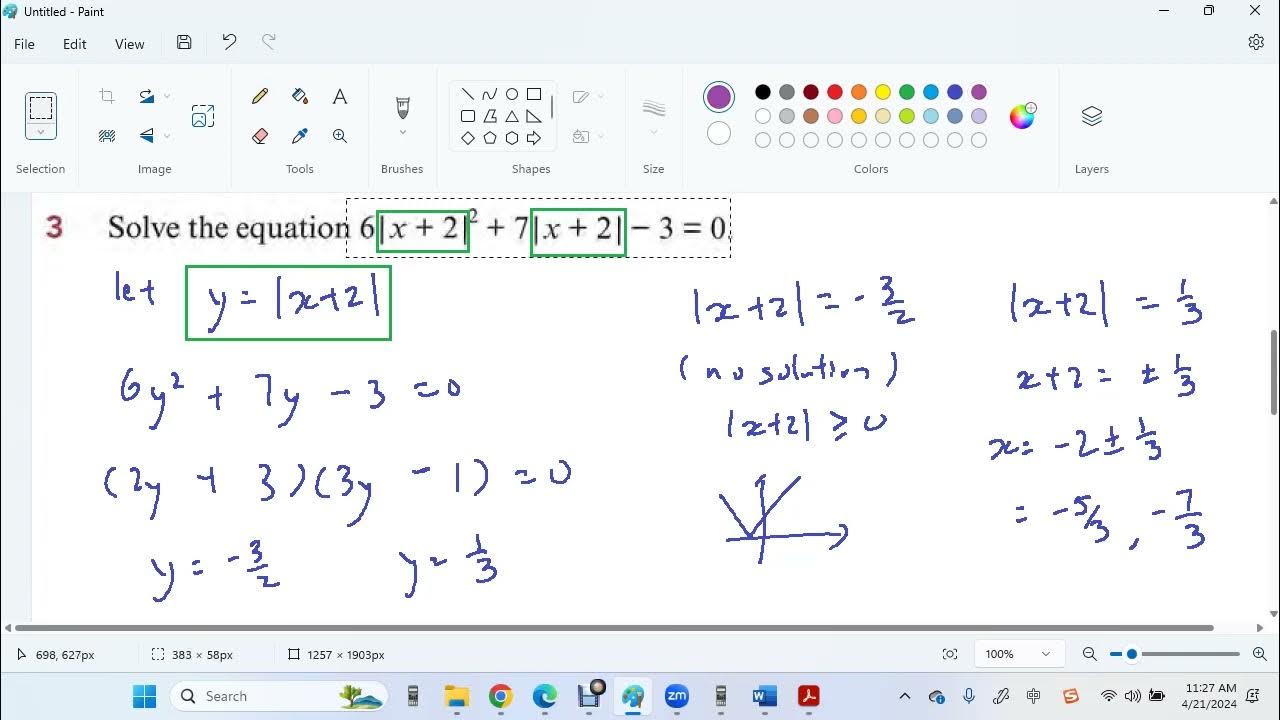 Untitled - Paint
File Edit View
Selection Image Tools Brushes Shapes Size Colors Layers
3 Solve the equation 6|x + 2|² + 7|x + 2| − 3 = 0
let y = |x+2|
6y² + 7y − 3 = 0
(2y + 3)(3y − 1) = 0
y = -3/2 y = 1/3
|x+2| = -3/2
(no solution)
|x+2| ≥ 0
|x+2| = 1/3
x+2 = ± 1/3
x = -2 ± 1/3
= -5/3, -7/3
698, 627px 383 × 58px 1257 × 1903px 100%
Search zm W 中 S 11:27 AM
4/21/2024